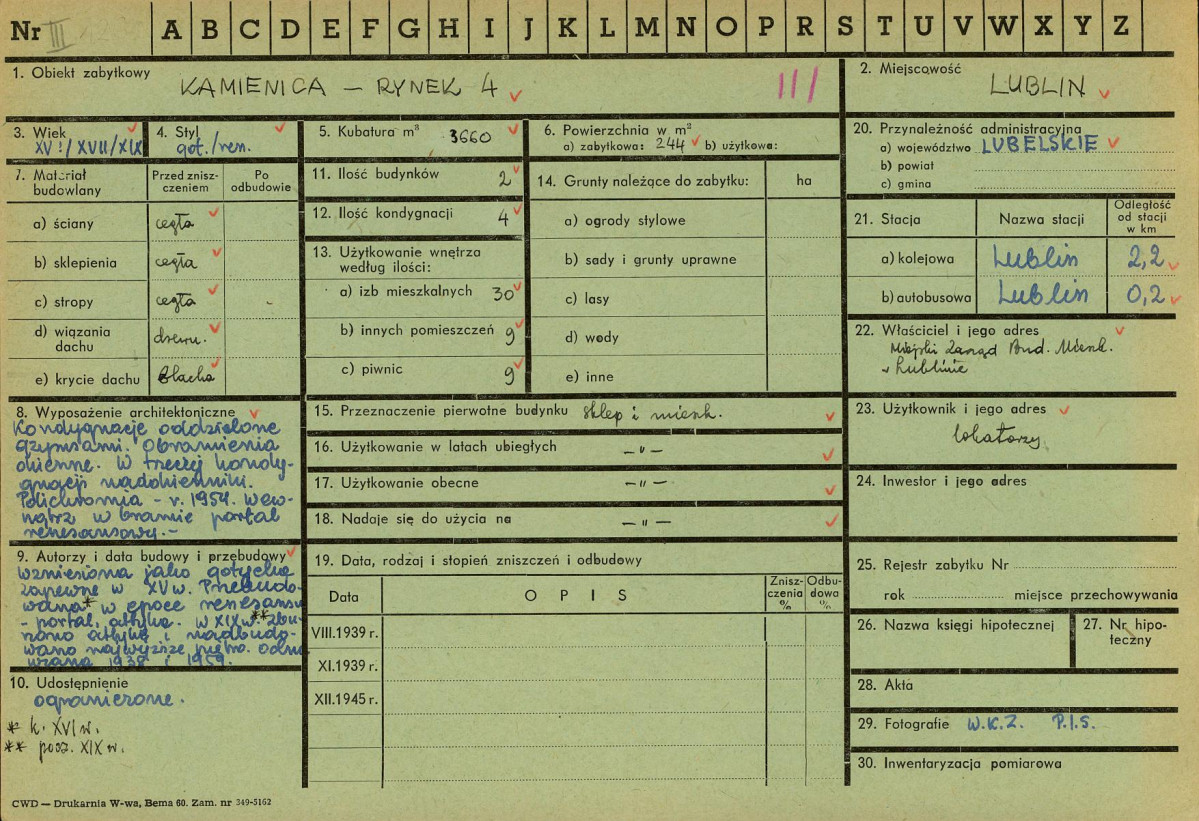 Nr III A B C D E F G H I J K L M N O P R S T U V W X Y Z
1. Obiekt zabytkowy
KAMIENICA – RYNEK 4
III
2. Miejscowość
LUBLIN
3. Wiek
XV!/XVII/XIX
4. Styl
got./ren.
5. Kubatura m³ 3660
6. Powierzchnia w m²
a) zabytkowa: 244 b) użytkowa:
20. Przynależność administracyjna
a) województwo LUBELSKIE
b) powiat
c) gmina
7. Materiał budowlany
Przed znisz-
czeniem
Po
odbudowie
a) ściany cegła
b) sklepienia cegła
c) stropy cegła
d) wiązania
dachu drewn.
e) krycie dachu blacha
11. Ilość budynków 2
12. Ilość kondygnacji 4
13. Użytkowanie wnętrza
według ilości:
a) izb mieszkalnych 30
b) innych pomieszczeń 9
c) piwnic 9
14. Grunty należące do zabytku: ha
a) ogrody stylowe
b) sady i grunty uprawne
c) lasy
d) wody
e) inne
21. Stacja Nazwa stacji
Odległość
od stacji
w km
a) kolejowa Lublin 2,2
b) autobusowa Lublin 0,2
22. Właściciel i jego adres
Miejski Zarząd Bud. Mieszk.
w Lublinie
8. Wyposażenie architektoniczne
Kondygnacje oddzielone
gzymsami. Obramienia
okienne. W trzeciej kondy-
gnacji nadokienniki.
Polichromia – r. 1954. Wew-
nątrz w bramie portal
renesansowy.–
15. Przeznaczenie pierwotne budynku sklep i mieszk.
16. Użytkowanie w latach ubiegłych –"–
17. Użytkowanie obecne –"–
18. Nadaje się do użycia na –"–
23. Użytkownik i jego adres
lokatorzy
24. Inwestor i jego adres
9. Autorzy i data budowy i przebudowy
Wzniesiona jako gotycka
zapewne w XV w. Przebudo-
wana* w epoce renesansu
- portal, attyka. W XIX w.** zbu-
rzono attykę i nadbudo-
wano najwyższe piętro. Odno-
wiana 1938 i 1954.
19. Data, rodzaj i stopień zniszczeń i odbudowy
Data OPIS
Znisz-
czenia
%
Odbu-
dowa
%
VIII.1939 r.
XI.1939 r.
XII.1945 r.
25. Rejestr zabytku Nr
rok miejsce przechowywania
26. Nazwa księgi hipotecznej
27. Nr hipo-
teczny
28. Akta
29. Fotografie W.K.Z. P.I.S.
30. Inwentaryzacja pomiarowa
10. Udostępnienie
ograniczone.
* k. XVI w.
** pocz. XIX w.
CWD — Drukarnia W-wa, Bema 60. Zam. nr 349-5162